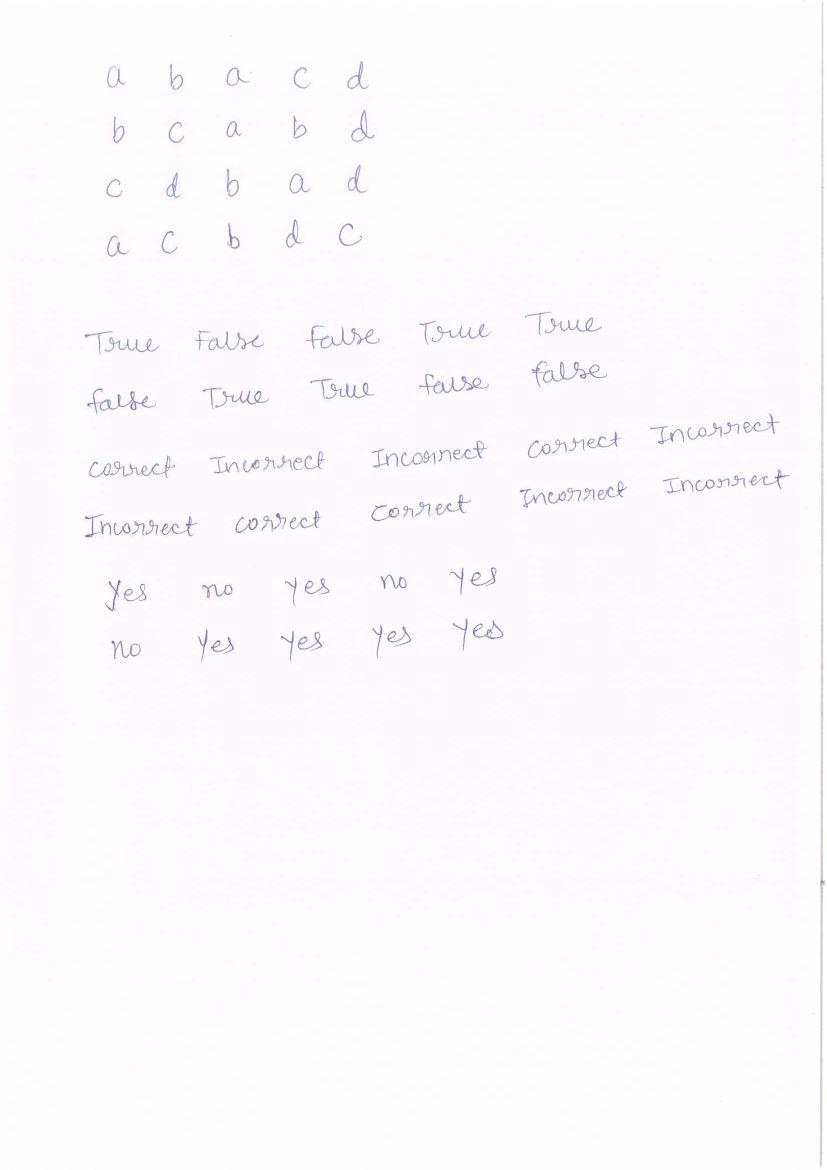 a b a c d
b c a b d
c d b a d
a c b d c
True False false True True
false True True false false
correct Incorrect Incorrect correct Incorrect
Incorrect correct correct Incorrect Incorrect
yes no yes no yes
no yes yes yes yes